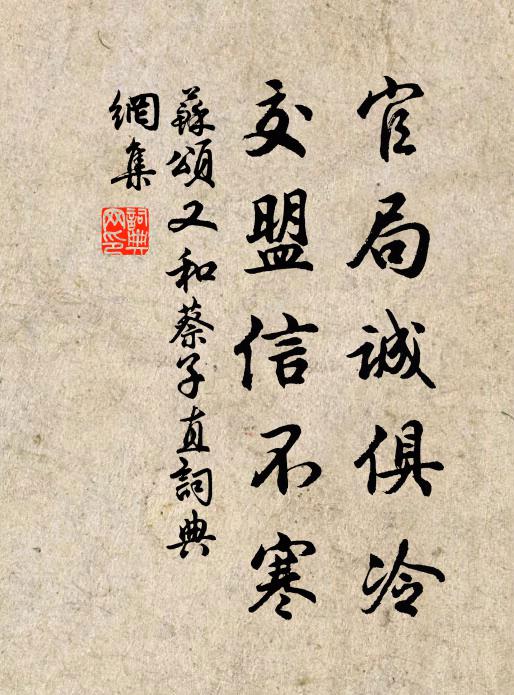 官局誠俱冷
交盟信不寒
蘇頌又和蔡子直詞典
網集
詞典
网印